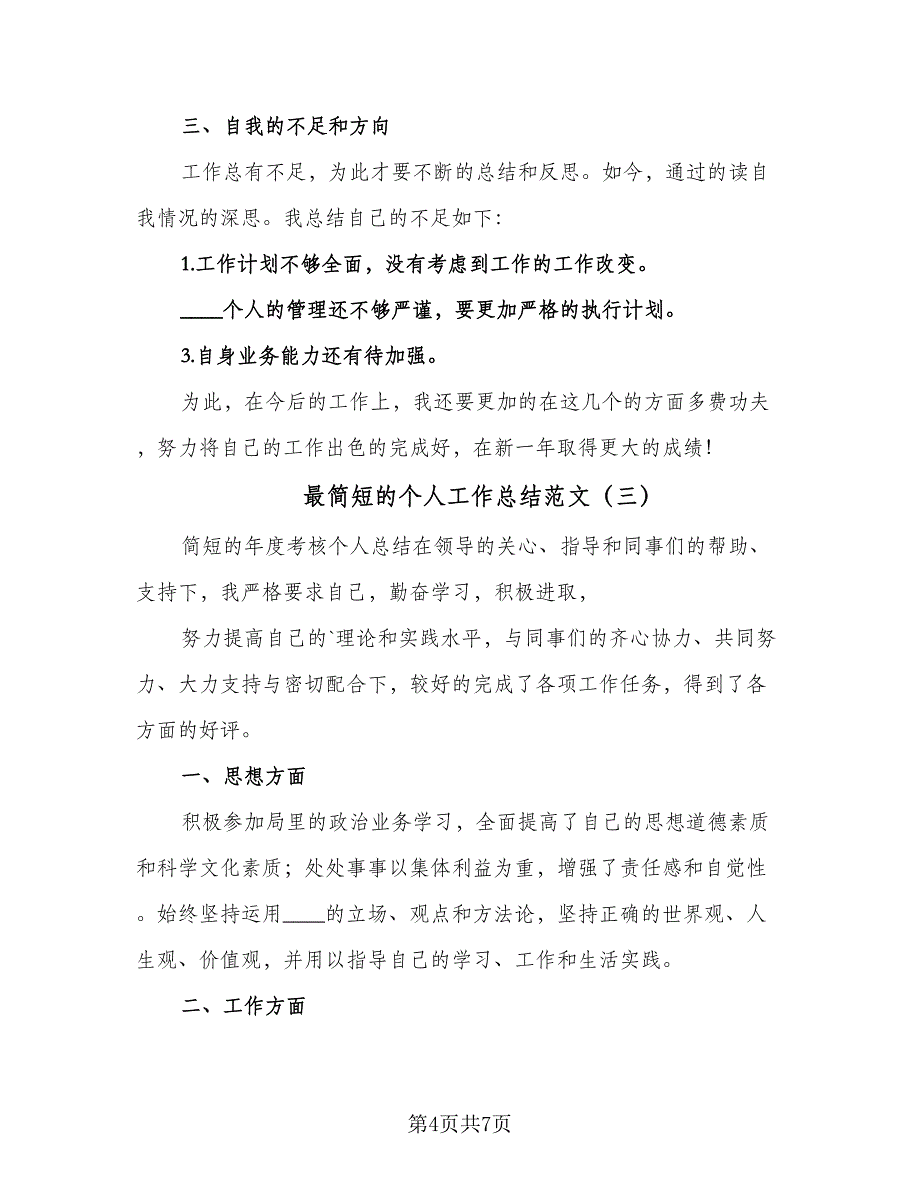 三、自我的不足和方向
工作总有不足，为此才要不断的总结和反思。如今，通过的读自
我情况的深思。我总结自己的不足如下：
1.工作计划不够全面，没有考虑到工作的工作改变。
____个人的管理还不够严谨，要更加严格的执行计划。
3.自身业务能力还有待加强。
为此，在今后的工作上，我还要更加的在这几个的方面多费功夫
，努力将自己的工作出色的完成好，在新一年取得更大的成绩！
最简短的个人工作总结范文（三）
简短的年度考核个人总结在领导的关心、指导和同事们的帮助、
支持下，我严格要求自己，勤奋学习，积极进取，
努力提高自己的`理论和实践水平，与同事们的齐心协力、共同努
力、大力支持与密切配合下，较好的完成了各项工作任务，得到了各
方面的好评。
一、思想方面
积极参加局里的政治业务学习，全面提高了自己的思想道德素质
和科学文化素质；处处事事以集体利益为重，增强了责任感和自觉性
。始终坚持运用____的立场、观点和方法论，坚持正确的世界观、人
生观、价值观，并用以指导自己的学习、工作和生活实践。
二、工作方面
第4页共7页